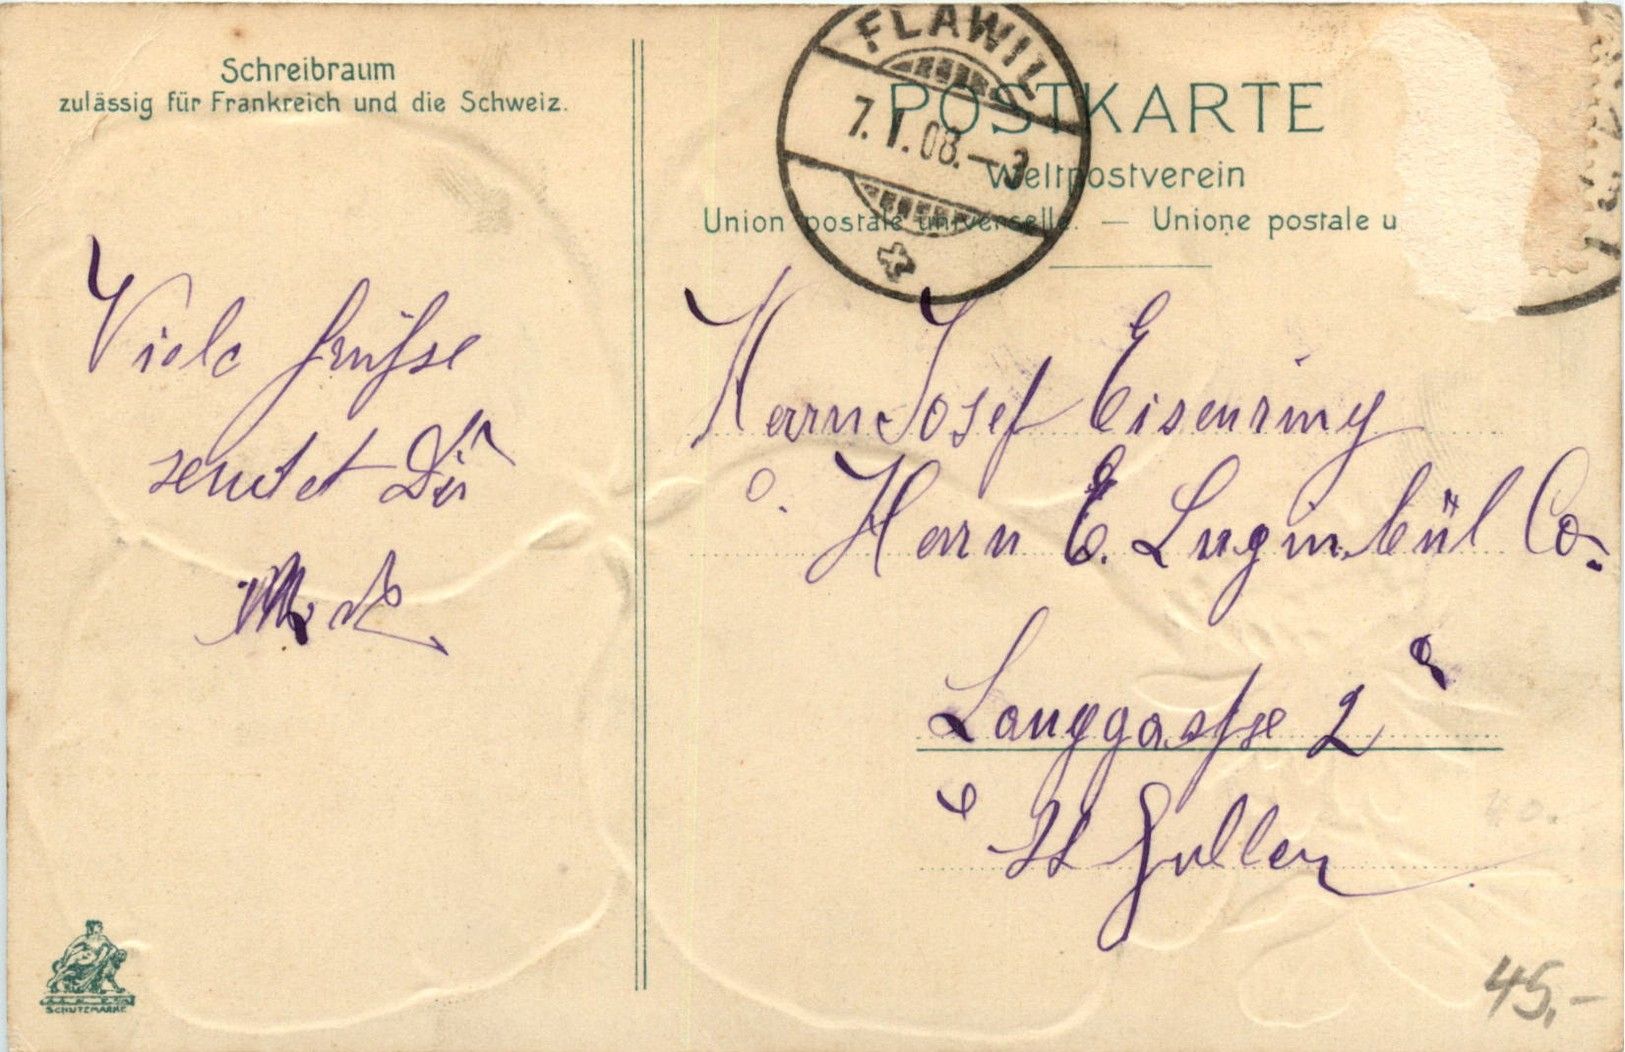 Schreibraum
zulässig für Frankreich und die Schweiz.
Viele Grüsse
sendet Dir
FLAWIL
7. I. 08. – 3
POSTKARTE
Weltpostverein
Union postale universelle. — Unione postale u
Herrn Josef Eisenring
Herrn E. Luginbül Co.
Langgasse 2
St Gallen
SCHUTZMARKE
40.
45,-